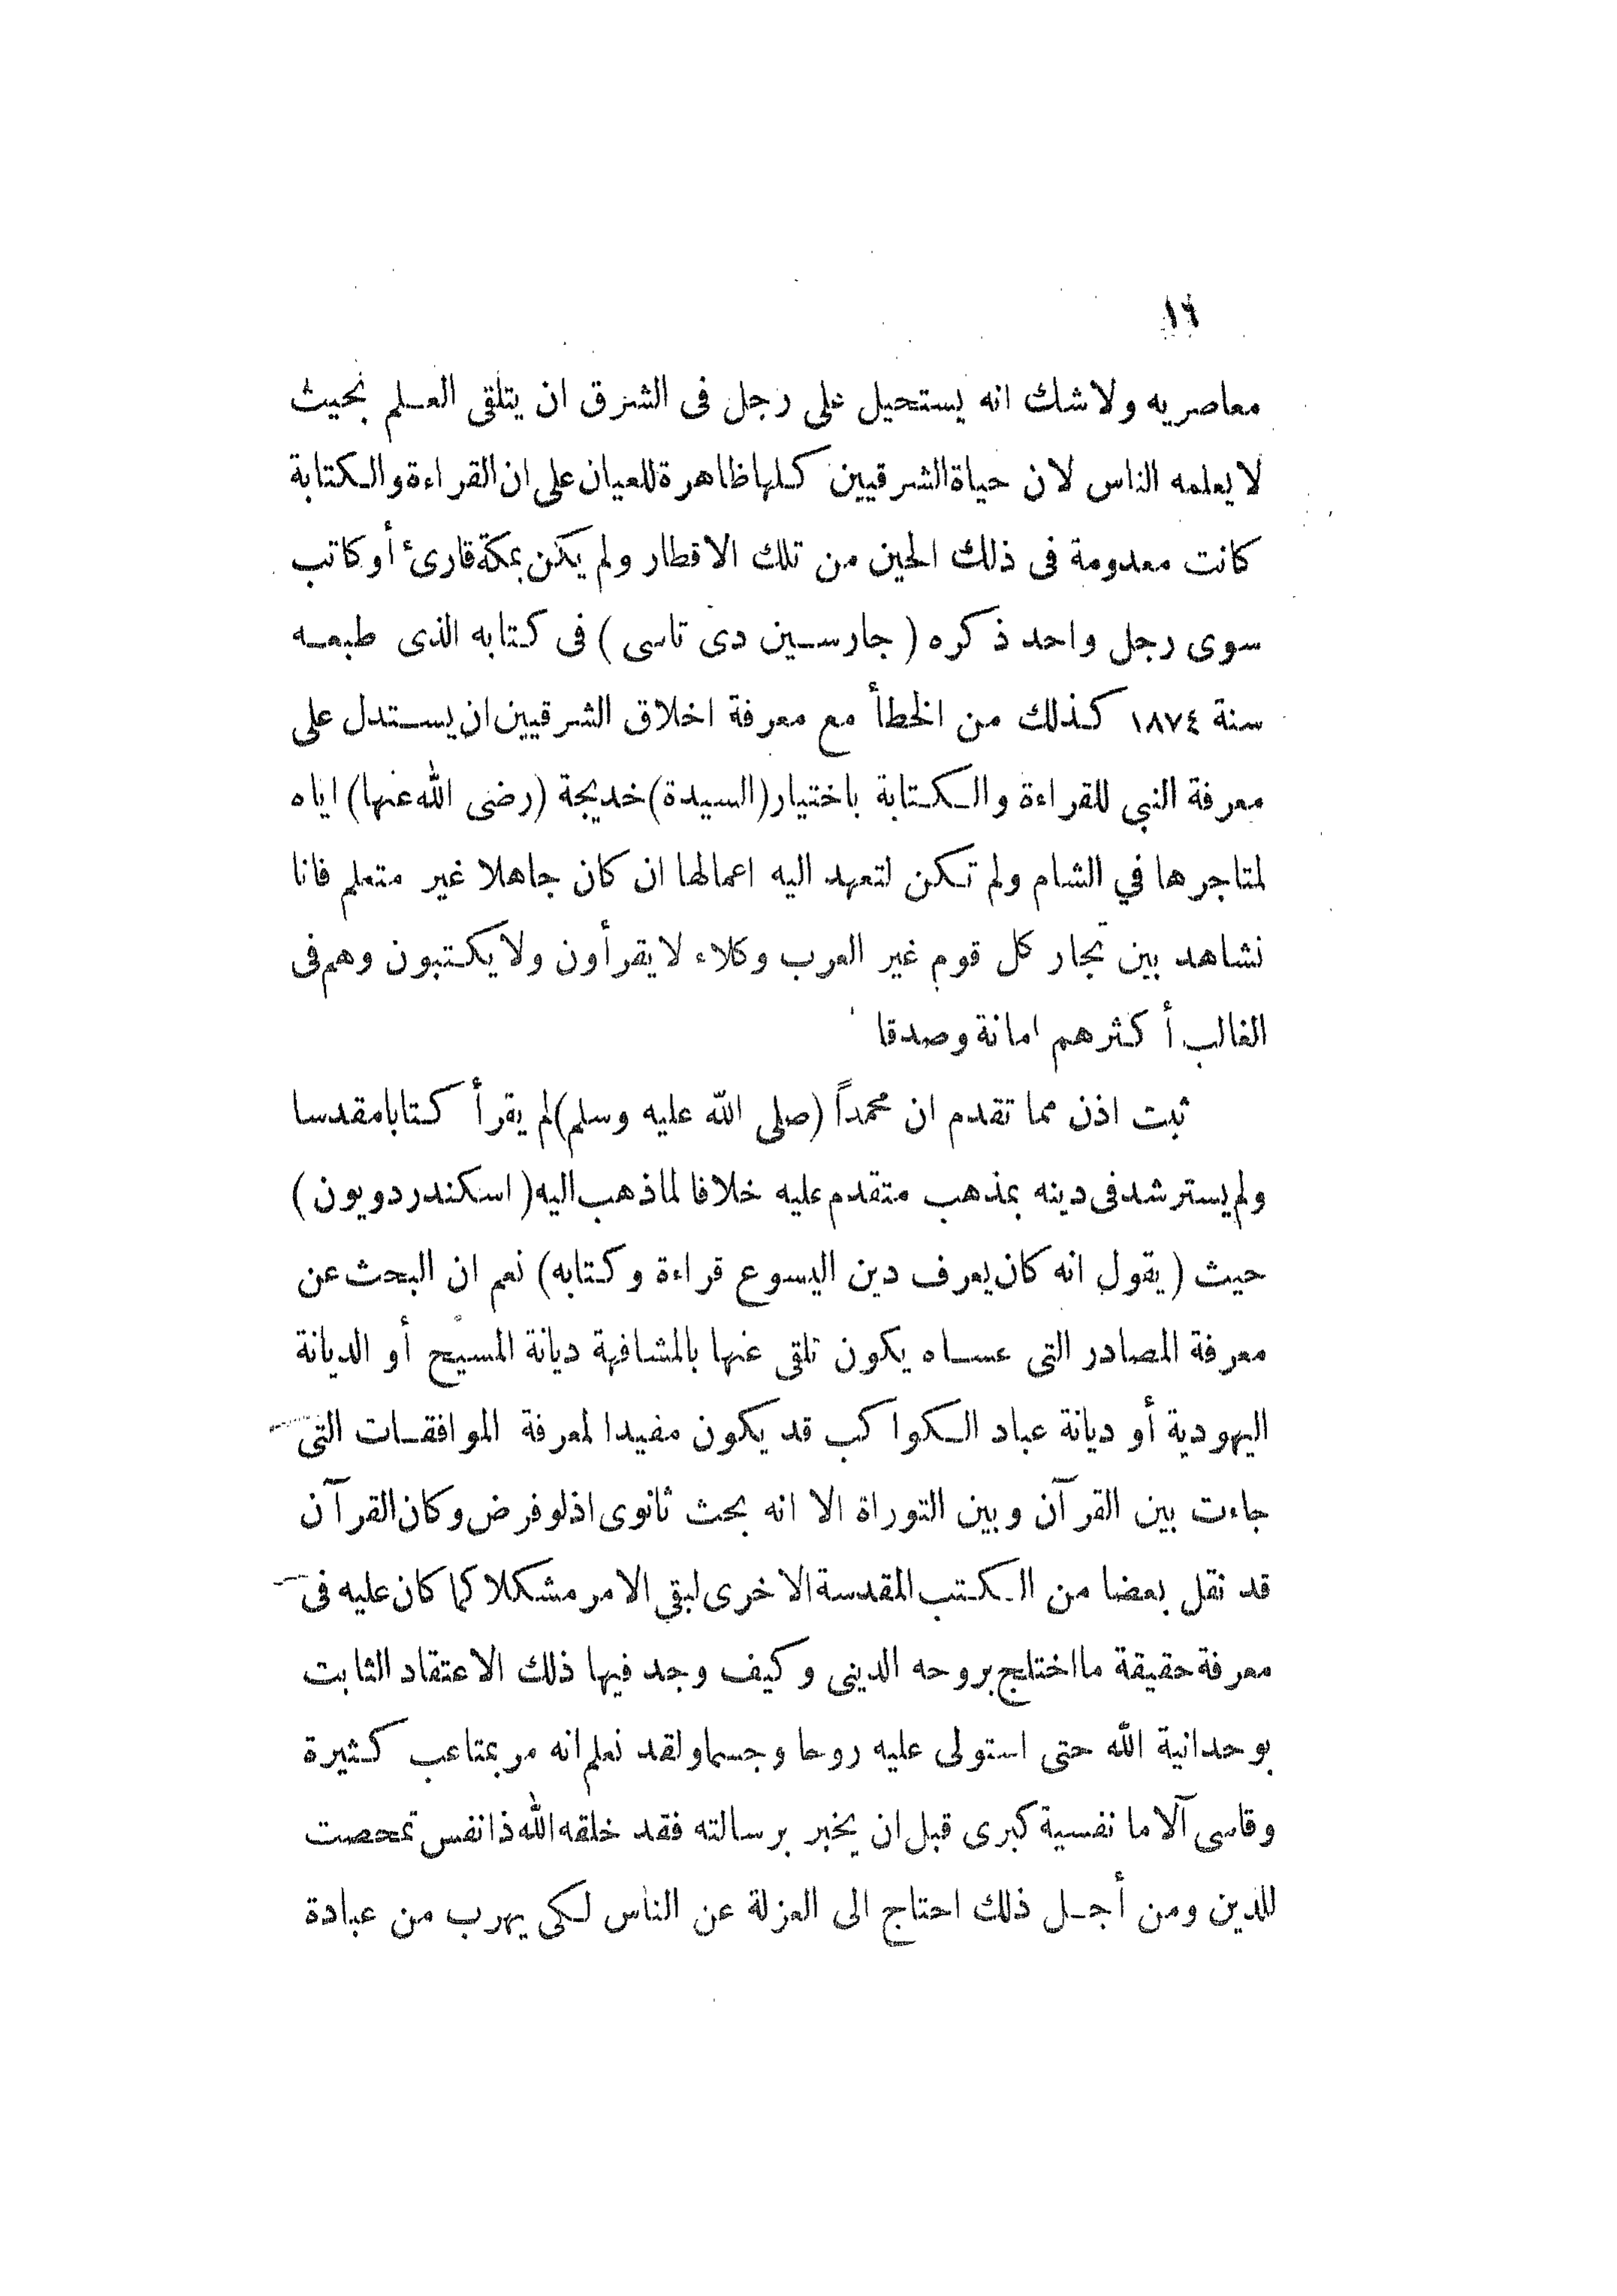 ١٦
معاصريه ولا شك انه يستحيل على رجل فى الشرق ان يتلقى العلم بحيث
لا يعلمه الناس لان حياة الشرقيين كلها ظاهرة للعيان على ان القراءة والكتابة
كانت معدومة فى ذلك الحين من تلك الاقطار ولم يكن بمكة قارئ أو كاتب
سوى رجل واحد ذكره ( جارسين دى تاسى ) فى كتابه الذى طبعه
سنة ١٨٧٤ كذلك من الخطأ مع معرفة اخلاق الشرقيين ان يستدل على
معرفة النبي للقراءة والكتابة باختيار (السيدة) خديجة (رضى الله عنها) اياه
لمتاجرها في الشام ولم تكن لتعهد اليه اعمالها ان كان جاهلا غير متعلم فانا
نشاهد بين تجار كل قوم غير العرب وكلاء لا يقرأون ولا يكتبون وهم فى
الغالب أكثرهم امانة وصدقا
ثبت اذن مما تقدم ان محمداً (صلى الله عليه وسلم) لم يقرأ كتابا مقدسا
ولم يسترشد فى دينه بمذهب متقدم عليه خلافا لما ذهب اليه ( اسكندر دويون )
حيث ( يقول انه كان يعرف دين اليسوع قراءة وكتابه) نعم ان البحث عن
معرفة المصادر التى عساه يكون تلقى عنها بالمشافهة ديانة المسيح أو الديانة
اليهودية أو ديانة عباد الكواكب قد يكون مفيدا لمعرفة الموافقات التى
جاءت بين القرآن وبين التوراة الا انه بحث ثانوى اذ لو فرض وكان القرآن
قد نقل بعضا من الكتب المقدسة الاخرى لبقي الامر مشكلا كما كان عليه فى
معرفة حقيقة ما اختلج بروحه الدينى وكيف وجد فيها ذلك الاعتقاد الثابت
بوحدانية الله حتى استولى عليه روحا وجسما ولقد نعلم انه مر بمتاعب كثيرة
وقاسى آلاما نفسية كبرى قبل ان يخبر برسالته فقد خلقه الله ذا نفس تمحصت
للدين ومن أجل ذلك احتاج الى العزلة عن الناس لكى يهرب من عبادة